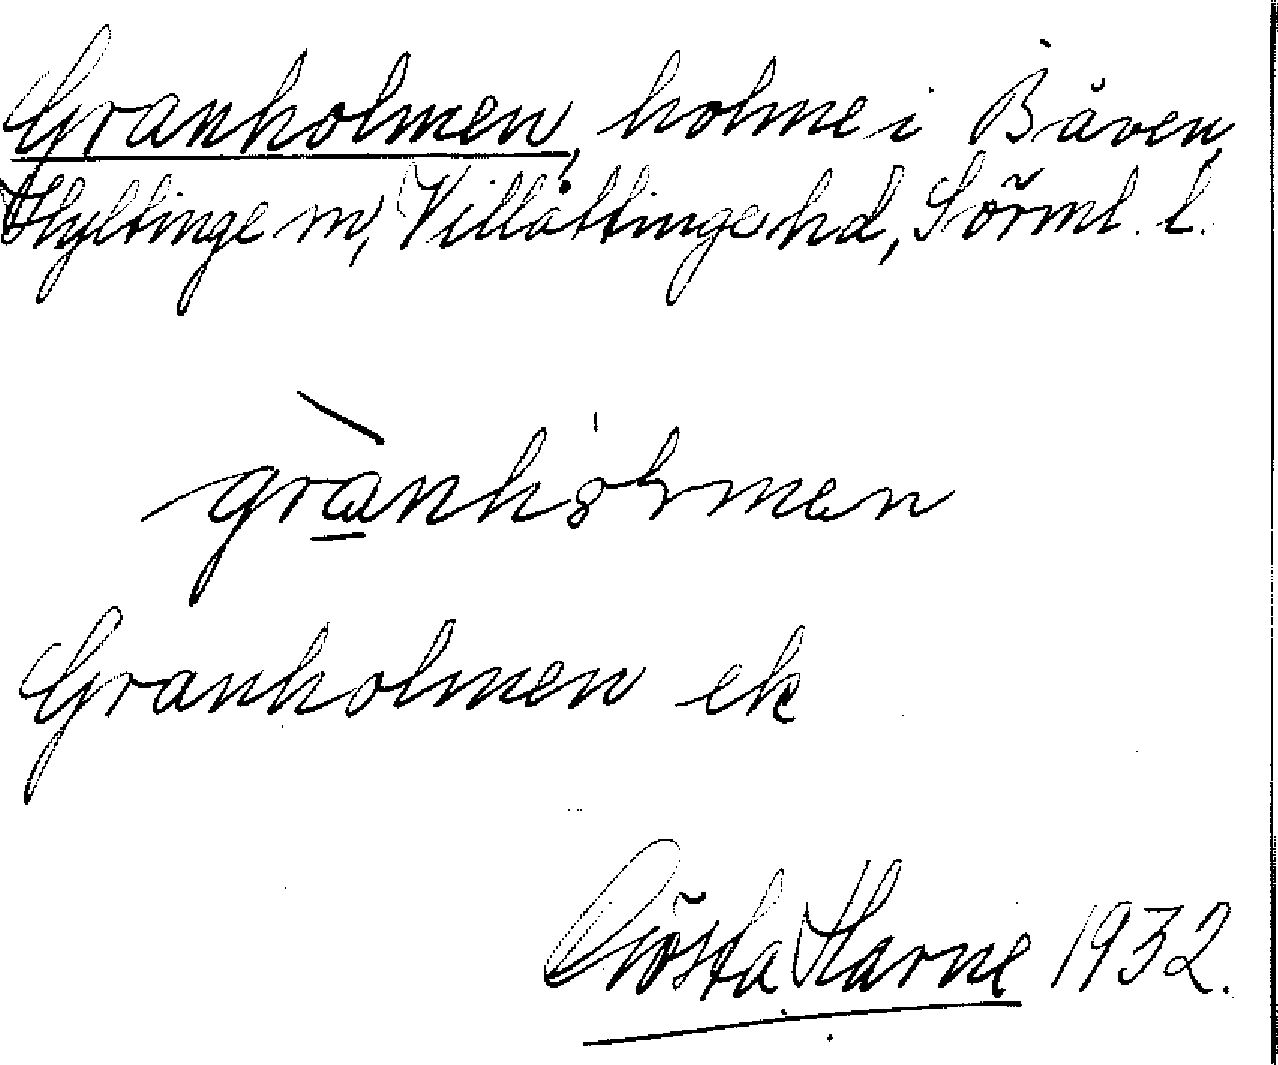 Granholmen, holme i Båven,
Hyltinge sn, Villåttinge hd, Sörml. l.
grànhòlmen
Granholmen ek
Gösta Harne 1932.